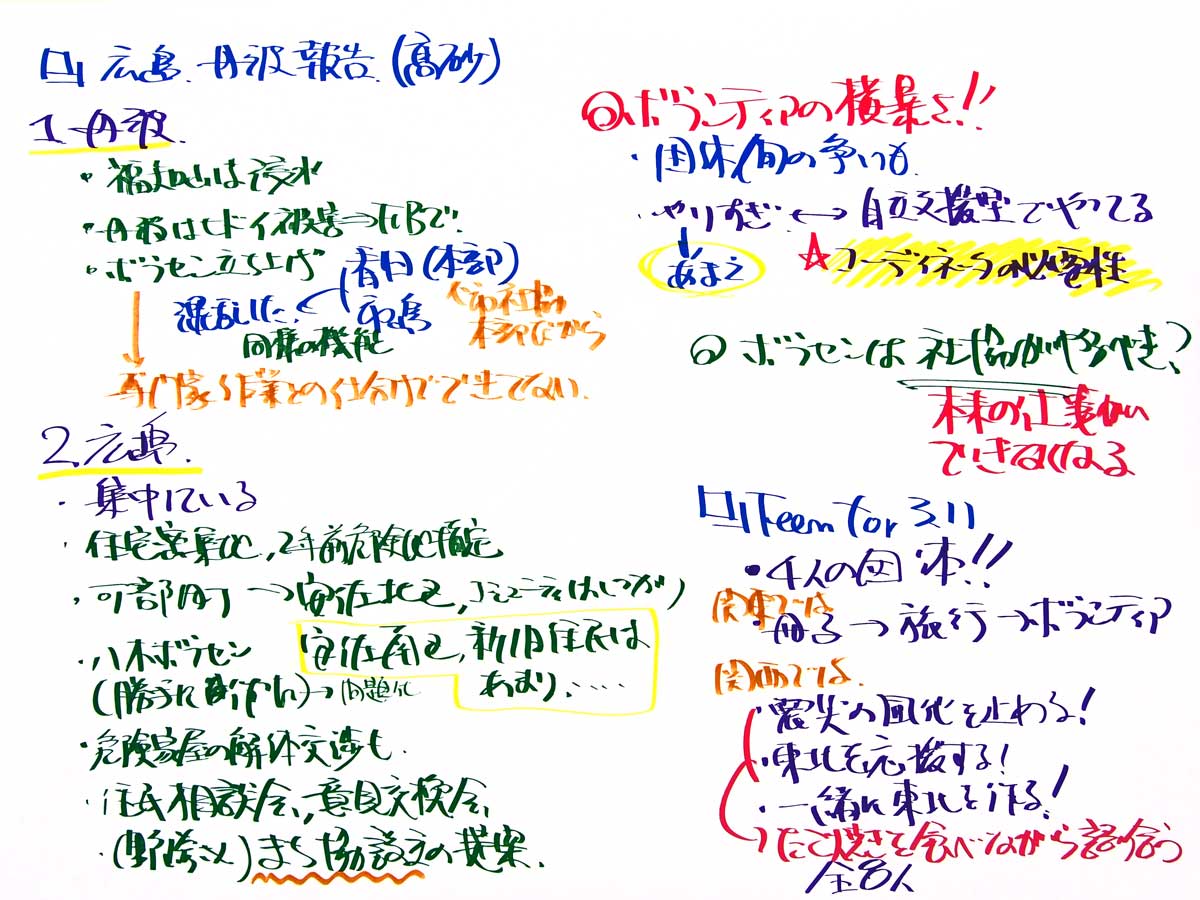 口 広島.丹波報告.(高砂)
1.丹波.
・福知山は浸水
・丹波はヒドイ被害→FBで!
・ボラセン立ち上げ
春日(本部)
市島
混乱した.
同様の機能
社協
本部だから
専門家の作業との仕分けができてない.
2.広島.
・集中している
・住宅密集地,2年前危険地指定
・可部町→安佐北区,コミュニティはしっかり
・八木ボラセン
(勝手に)→問題化
安佐南区,新旧住民は
あまり、‥‥
・危険家屋の解体交渉も
・住民相談会、意見交換会、
・(野崎さん)まち協設立の提案.
◎ボランティアの横暴さ!!
・団体間の争いも
・やりすぎ ↔ 自立支援型でやってる
↓
あまえ
☆コーディネータの必要性
◎ボラセンは社協がやるべき?
本来の仕事が
できなくなる
口 Teem for 311
・4人の団体!!
関東では
・冊子→旅行→ボランティア
関西では.
・震災の風化を止める!
・東北を応援する!
・一緒に東北を作る!
たこ焼きを食べながら話合う
全8人